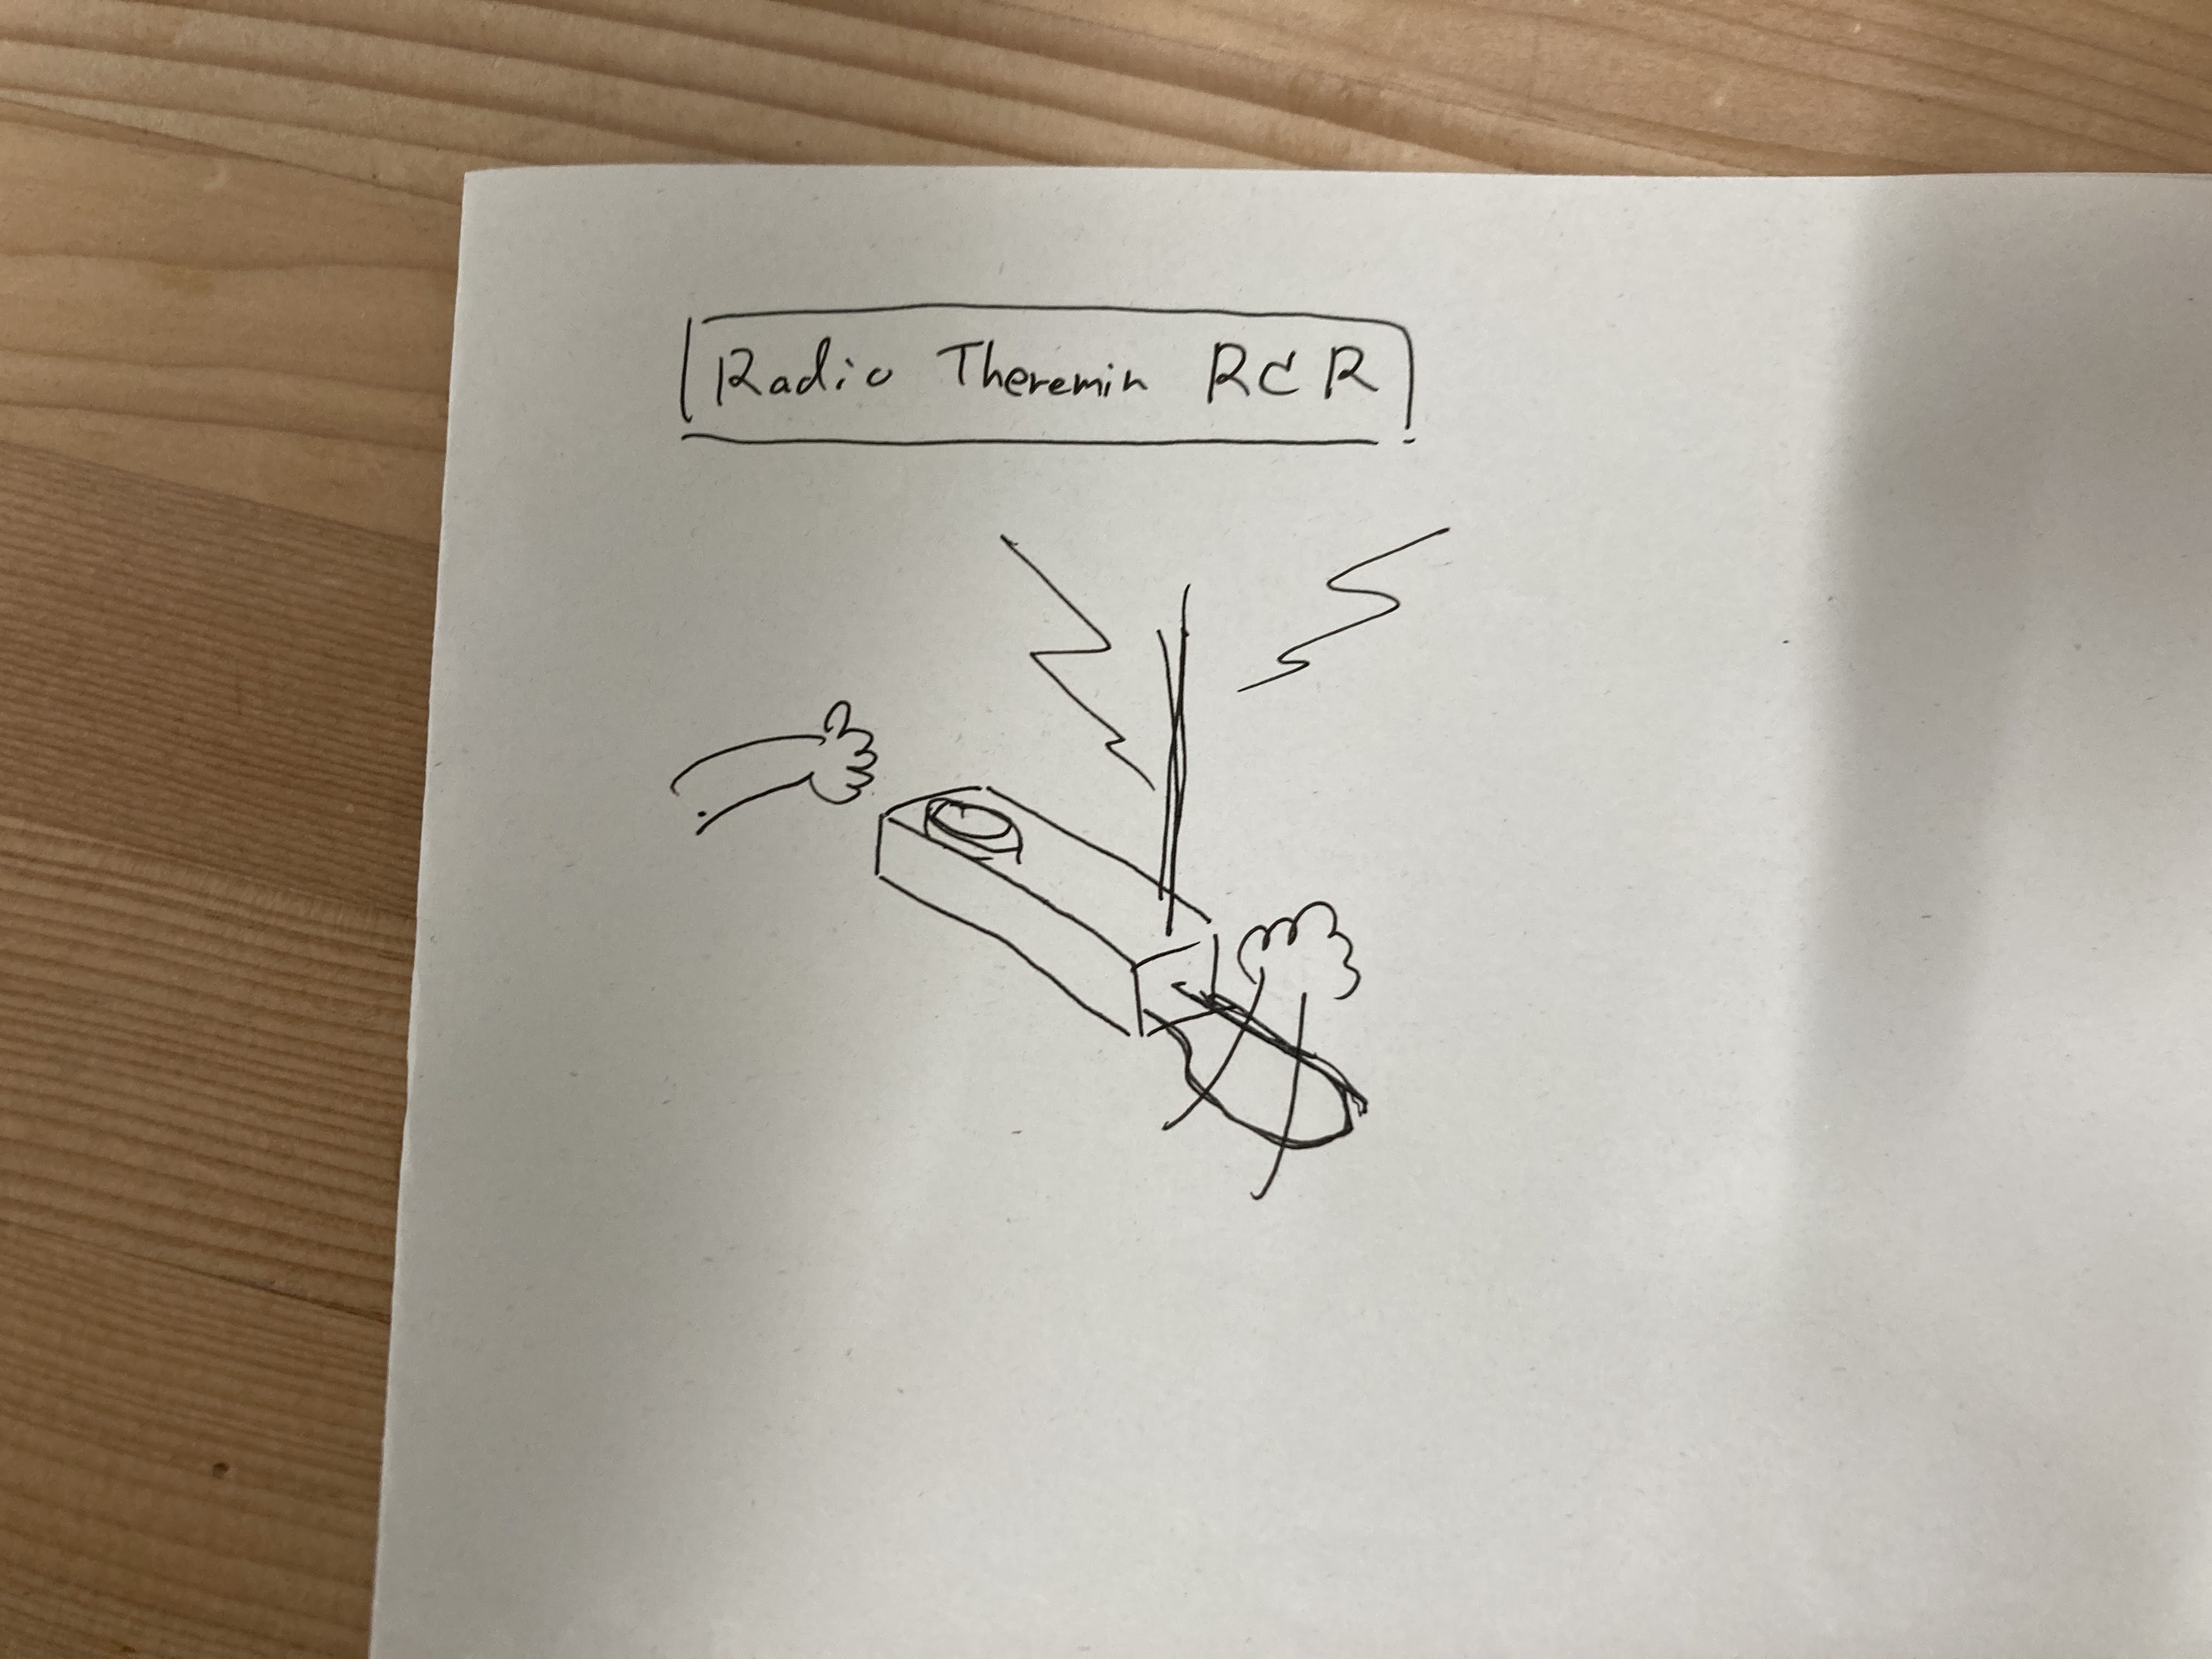 Radio Theremin RCR